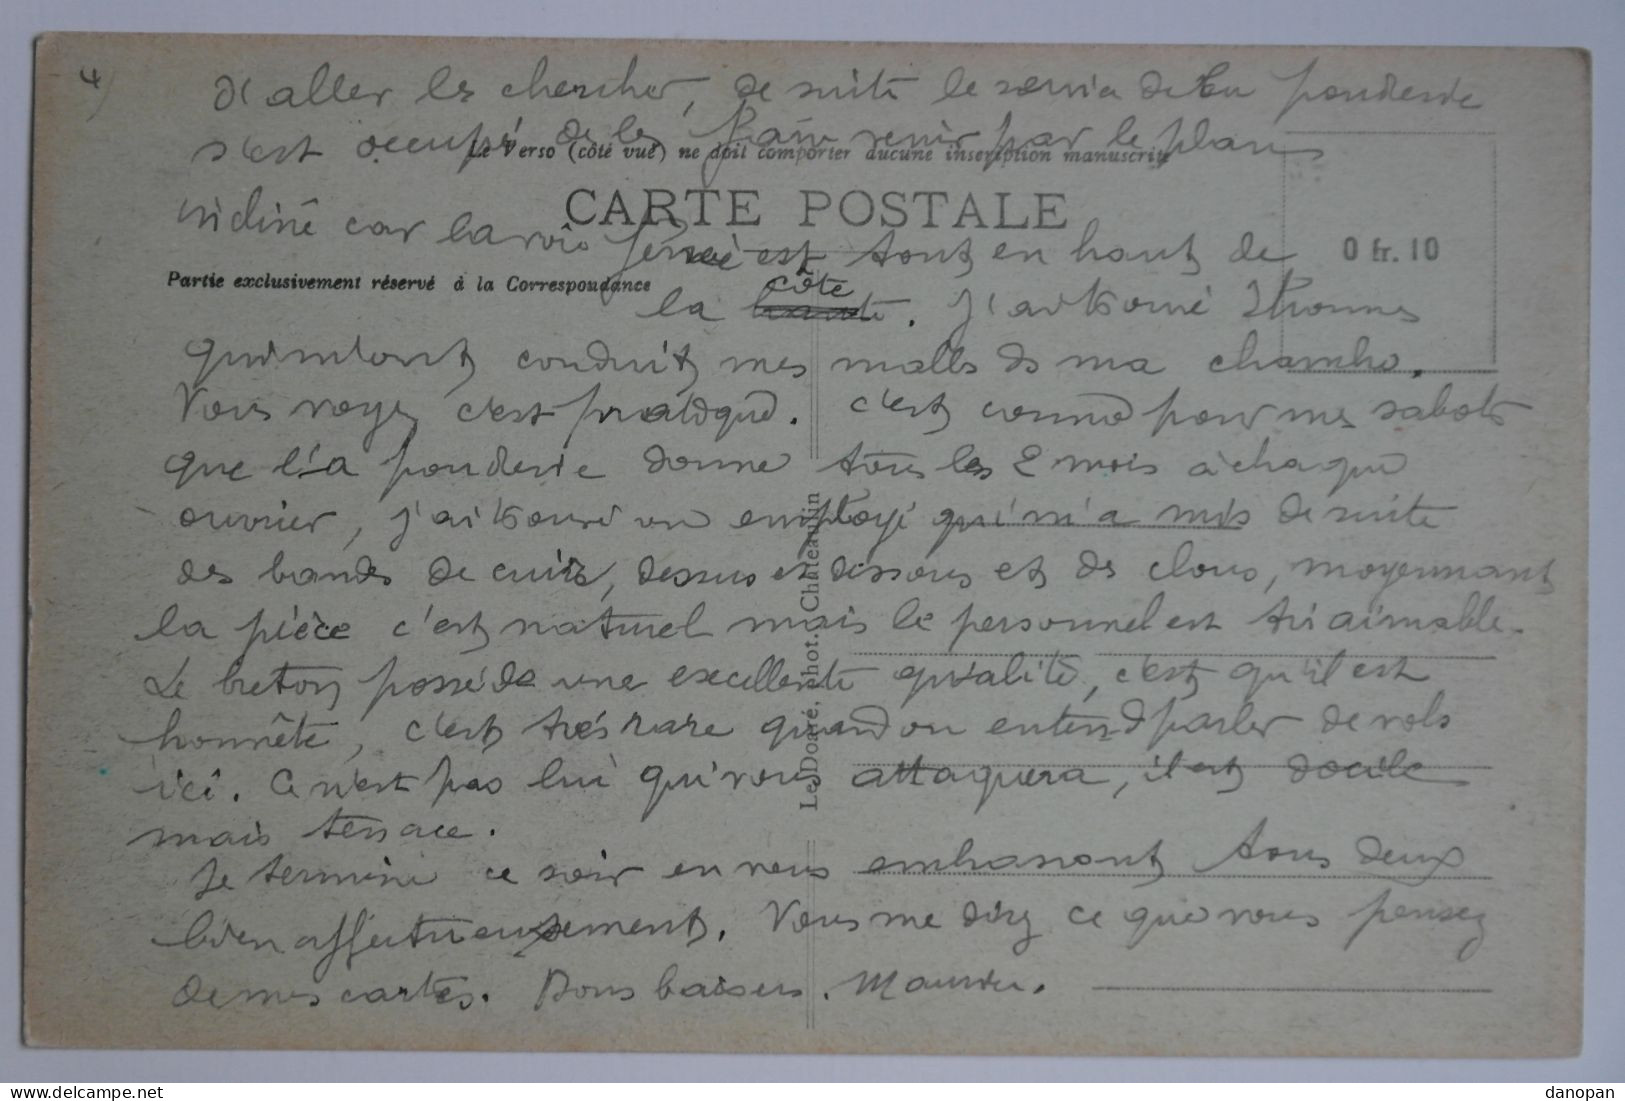 4)
d'aller les chercher, de suite le service de la poudrerie
s'est occupé de les faire venir par le plan
Le Verso (côté vue) ne doit comporter aucune inscription manuscrite
CARTE POSTALE
incliné car la voie ferrée est tout en haut de
0 fr. 10
Partie exclusivement réservé à la Correspondance
la côte. J'ai trouvé 2 hommes
qui m'ont conduit mes malles ds ma chambre.
Vous voyez c'est pratique. C'est comme pour mes sabots
que la poudrerie donne tous les 2 mois à chaque
ouvrier, j'ai trouvé un employé qui m'a mis de suite
des bandes de cuir, dessus et dessous et des clous, moyennant
la pièce c'est naturel mais le personnel est très aimable.
Le breton possède une excellente qualité, c'est qu'il est
honnête, c'est très rare quand on entend parler de vols
ici. Ce n'est pas lui qui vous attaquera, il est docile
mais tenace.
Je termine ce soir en vous embrassant tous deux
bien affectueusement. Vous me direz ce que vous pensez
de mes cartes. Bons baisers. Maurice.
Le Doaré, phot. Châteaulin
danopan